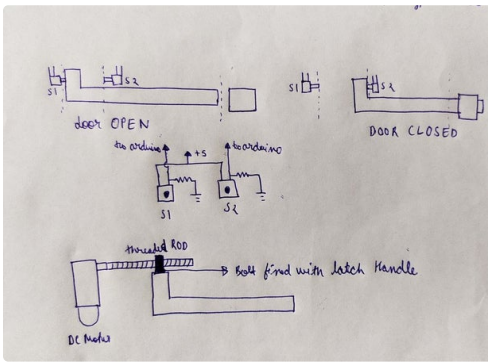 S1
S2
door OPEN
S1
S2
DOOR CLOSED
to arduino
+5
to arduino
S1
S2
threaded ROD
Bolt fixed with latch Handle
DC Motor